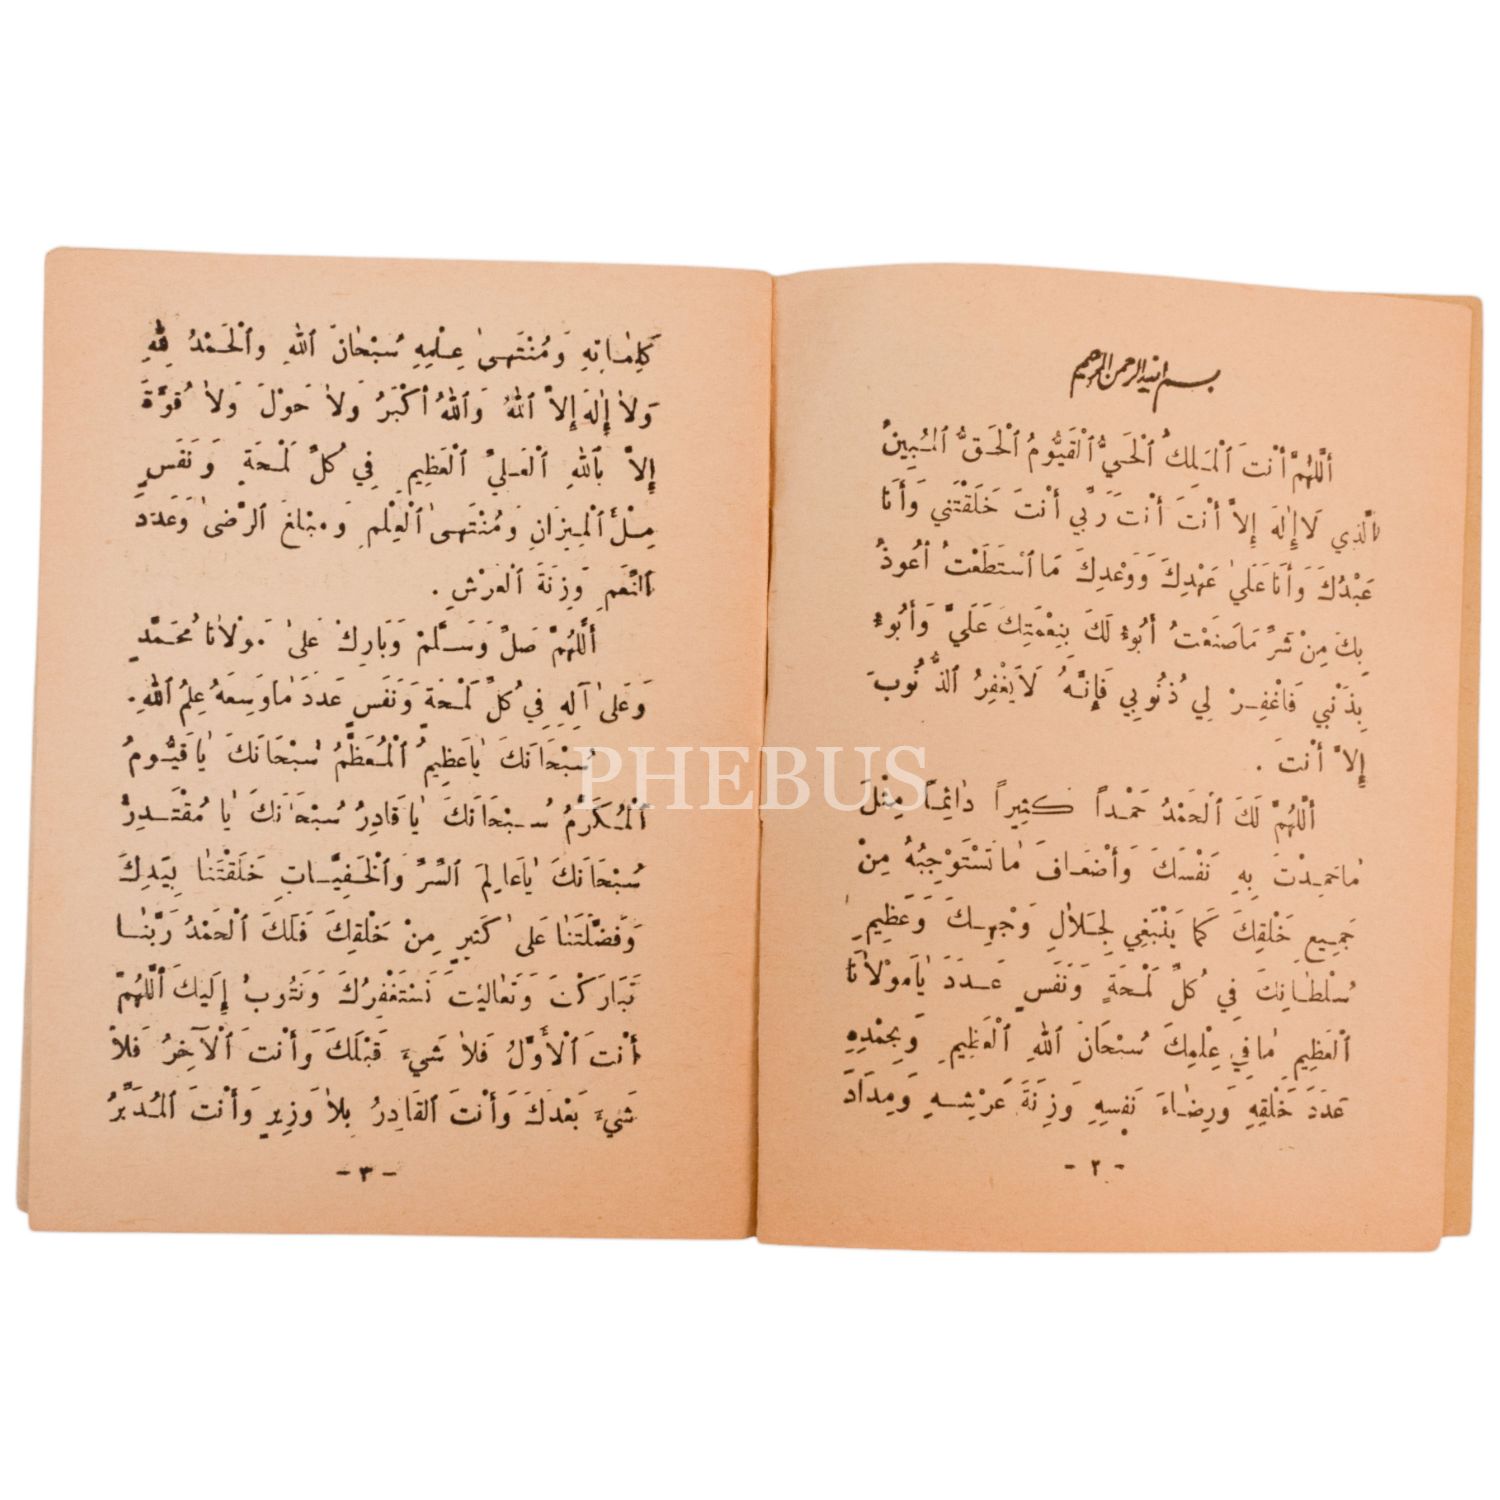 بسم الله الرحمن الرحيم
أَللّٰهُمَّ أَنْتَ ٱلْمَلِكُ ٱلْحَيُّ ٱلْقَيُّومُ ٱلْحَقُّ ٱلمُبِينُ
ٱلَّذِي لَا إِلٰهَ إِلاَّ أَنْتَ أَنْتَ رَبِّي أَنْتَ خَلَقْتَنِي وَأَنَا
عَبْدُكَ وَأَنَا عَلىٰ عَهْدِكَ وَوَعْدِكَ مَا ٱسْتَطَعْتُ أَعُوذُ
بِكَ مِنْ شَرِّ مَا صَنَعْتُ أَبُوءُ لَكَ بِنِعْمَتِكَ عَلَيَّ وَأَبُوءُ
بِذَنْبِي فَاغْفِرْ لِي ذُنُوبِي فَإِنَّهُ لَا يَغْفِرُ ٱلذُّنُوبَ
إِلاَّ أَنْتَ .
أَللّٰهُمَّ لَكَ ٱلْحَمْدُ حَمْداً كَثِيراً دٰائِماً مِثْلَ
مٰا حَمِدْتَ بِهِ نَفْسَكَ وَأَضْعَافَ مٰا تَسْتَوْجِبُهُ مِنْ
جَمِيعِ خَلْقِكَ كَمَا يَنْبَغِي لِجَلاٰلِ وَجْهِكَ وَعَظِيمِ
سُلْطَانِكَ فِي كُلِّ لَمْحَةٍ وَنَفَسٍ عَدَدَ يٰا مَوْلاٰنَا
ٱلْعَظِيمِ مٰا فِي عِلْمِكَ سُبْحَانَ ٱللهِ ٱلْعَظِيمِ وَبِحَمْدِهِ
عَدَدَ خَلْقِهِ وَرِضٰاءَ نَفْسِهِ وَزِنَةَ عَرْشِهِ وَمِدَادَ
- ٢ -
كَلِمٰاتِهِ وَمُنْتَهىٰ عِلْمِهِ سُبْحٰانَ ٱللهِ وَٱلْحَمْدُ لِلّٰهِ
وَلاٰ إِلٰهَ إِلاَّ ٱللهُ وَٱللهُ أَكْبَرُ وَلاٰ حَوْلَ وَلاٰ قُوَّةَ
إِلاَّ بِٱللهِ ٱلْعَلِيِّ ٱلْعَظِيمِ فِي كُلِّ لَمْحَةٍ وَنَفَسٍ
مِلْأَ ٱلْمِيزَانِ وَمُنْتَهىٰ ٱلْعِلْمِ وَمَبْلَغَ ٱلرِّضىٰ وَعَدَدَ
ٱلنِّعَمِ وَزِنَةَ ٱلْعَرْشِ .
أَللّٰهُمَّ صَلِّ وَسَلِّمْ وَبَارِكْ عَلىٰ مَوْلاٰنَا مُحَمَّدٍ
وَعَلىٰ آلِهِ فِي كُلِّ لَمْحَةٍ وَنَفَسٍ عَدَدَ مٰا وَسِعَهُ عِلْمُ ٱللهِ .
سُبْحَانَكَ يٰا عَظِيمُ ٱلْمُعَظَّمُ سُبْحَانَكَ يٰا قَيُّومُ
ٱلْمُكَرَّمُ سُبْحَانَكَ يٰا قَادِرُ سُبْحَانَكَ يٰا مُقْتَدِرُ
سُبْحَانَكَ يٰا عَالِمَ ٱلسِّرِّ وَٱلْخَفِيَّاتِ خَلَقْتَنٰا بِيَدِكَ
وَفَضَّلْتَنٰا عَلىٰ كَثِيرٍ مِنْ خَلْقِكَ فَلَكَ ٱلْحَمْدُ رَبَّنٰا
تَبَارَكْتَ وَتَعٰالَيْتَ نَسْتَغْفِرُكَ وَنَتُوبُ إِلَيكَ أَللّٰهُمَّ
أَنْتَ ٱلْأَوَّلُ فَلاٰ شَيْءَ قَبْلَكَ وَأَنْتَ ٱلْآخِرُ فَلاٰ
شَيْءَ بَعْدَكَ وَأَنْتَ ٱلقَادِرُ بِلاٰ وَزِيرٍ وَأَنْتَ ٱلمُدَبِّرُ
- ٣ -
PHEBUS